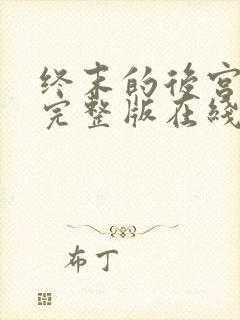 终末的後宫
完整版在綫
布丁